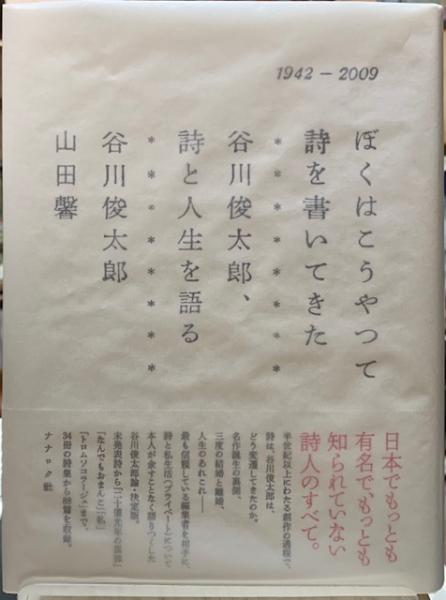 1942 − 2009
ぼくはこうやって
詩を書いてきた
＊＊＊＊＊＊＊＊
谷川俊太郎、
詩と人生を語る
＊＊＊＊＊＊＊＊
谷川俊太郎
山田馨
日本でもっとも
有名で、もっとも
知られていない
詩人のすべて。
半世紀以上にわたる創作の過程で、
詩は、谷川俊太郎は、
どう変遷してきたのか。
名作誕生の裏側、
三度の結婚と離婚、
人生のあれこれ――
最も信頼している編集者を相手に、
詩と私生活（プライベート）について
本人が余すことなく語りつくした
谷川俊太郎論・決定版。
未発表詩から『二十億光年の孤独』
『なんでもおまんこ』『私』
『トロムソコラージュ』まで、
34冊の詩集から 篇を収録。
ナナロク社